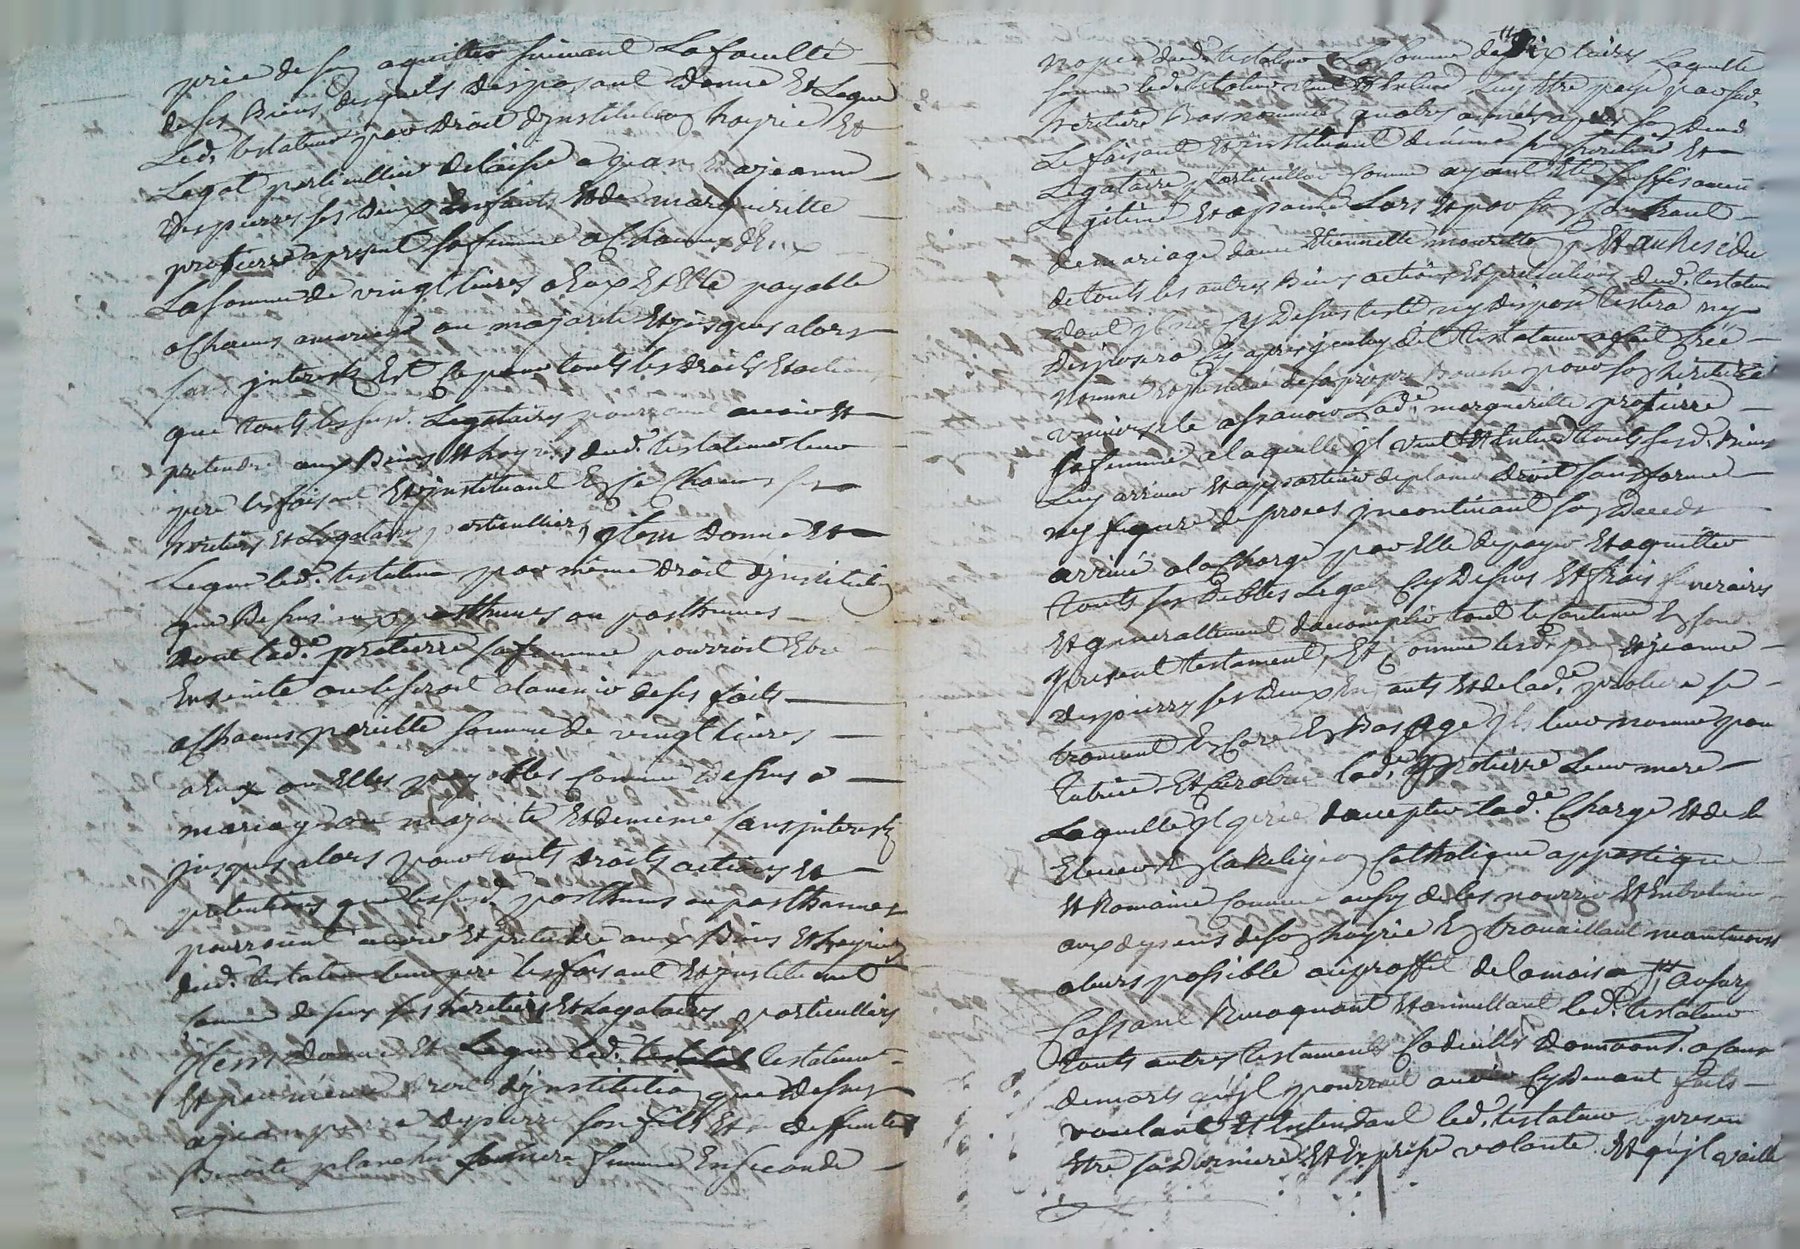 priée de s'en aquitter suivant La faculté
de ses Biens desquels disposant Donne Et Legue
Led. testateur par Droit d'jnstitution hayrie Et
Legat particullier delaisse a jean Et ajeanne
Despierres ses Deux Enfants Et de margueritte
protierre apresent sa femme a Chacun d'Eux
La somme de vingt livres a Eux Et Elle payable
a Chacuns amariage ou majorité Et jusques alors
sans jnterest Et Ce pour touts les Droits Et actions
que touts les susd. Legataires pourroient avoir Et
pretendre aux Biens Et hayries dud. testateur leur
pere les faisant Et jnstituant En Ce Chacuns ses
heritiers Et Legataires particulliers, jtem Donne Et
Legue led. testateur par même Droit d'jnstitution
que Dessus aux posthumes ou posthumes
dont lad.e protierre sa femme pourroit Etre
Enseinte ou le seroit alavenir de ses faits
a Chacuns pareille somme de vingt livres
a Eux ou Elles payables Comme Dessus a
mariage ou majorité Et demême sans jnterest
jusques alors pour touts Droits actions Et
pretentions que lesusd. posthumes ou posthumes
pourroient avoir Et pretendre aux Biens Et hayries
dud. testateur leur pere les faisant Et jnstituant
Comme dessus ses heritiers Et Legataires particulliers
jtem Donne Et Legue led. testateur
Et par même Droit d'jnstitution que Dessus
ajean pierre Despierre son fils Et de deffunte
Benoite planchu sa femme En seconde
nopce dud. testateur La somme de dix livres Laquelle
somme led. testateur veut Et Entend Luy Etre payé par son
heritiere Bas nommée quatre années apres son Deced
Le faisant Et jnstituant de même son heritier Et
Legataire particullier Comme ayant Eté suffisament
Legitimé Et apanné Lors Et par son Contrant
de mariage danne Etiennette mourette, Et au Residu
de touts les autres Biens actions Et pretentions dud. testateur
dont jl n'a Cy Dessus testé ny disposé testera ny
Disposera Cy apres jceluy dit testateur a fait Créé
Nommé Et jnstitué de sa propre Bouche pour son heritiere
universelle assavoir Lad.e margueritte protierre
sa femme a laquelle jl veut Et Entend touts sesd. Biens
Luy arriver Et appartenir de plaine droit sans forme
ny figure de proces jncontinant son Deceds
arrivé ala Charge par Elle de payer Et aquitter
touts ses Debtes Legat Cy Dessus Et frais funeraires
Et generallement daccomplir tout le Contenue En son
present testament, Et Comme lesd. jean Et jeanne
despierres ses deux Enfants Et de lad.e protierre se
trouvent Encore En Bas Age jls leur nomme pour
tutrice Et Curatrice lad.e protierre Leur mere
Laquelle jl prie daccepter lad.e Charge Et de les
Elever En la Religion Catholique appostique
Et Romaine Comme aussy de les nourrir Et Entretenir
aux dépens de son hayrie En travaillant
a leurs possible au proffit de la maison, aussy
Cassant Revoquant Et annullant led. testateur
touts autres testaments Codicilles Donnaons. a Cause
de morts qu'jl pourroit avoir Cy Devant faits
voulant Et Entendant led. testateur le present
Etre sa Derniere Et Expresse volonté Et qu'jl vaille